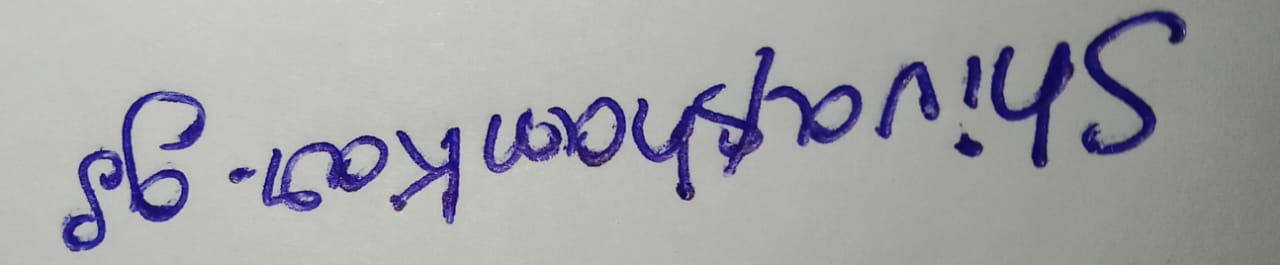 Shivashankar. gs